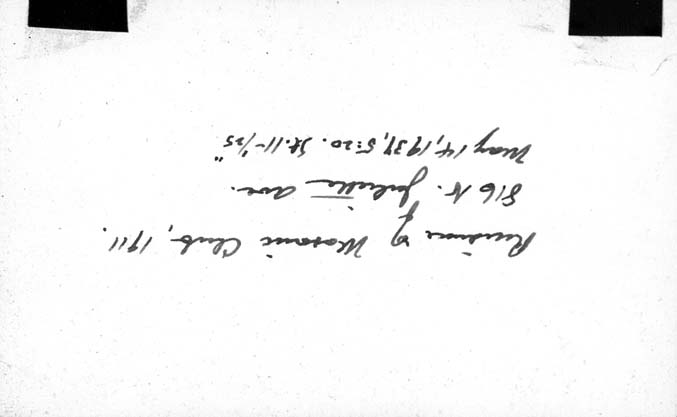 Residence of Masonic Club, 1911.
816 N. Juliette Ave.
May 14, 1937, 5:20. St. 11-1/25"